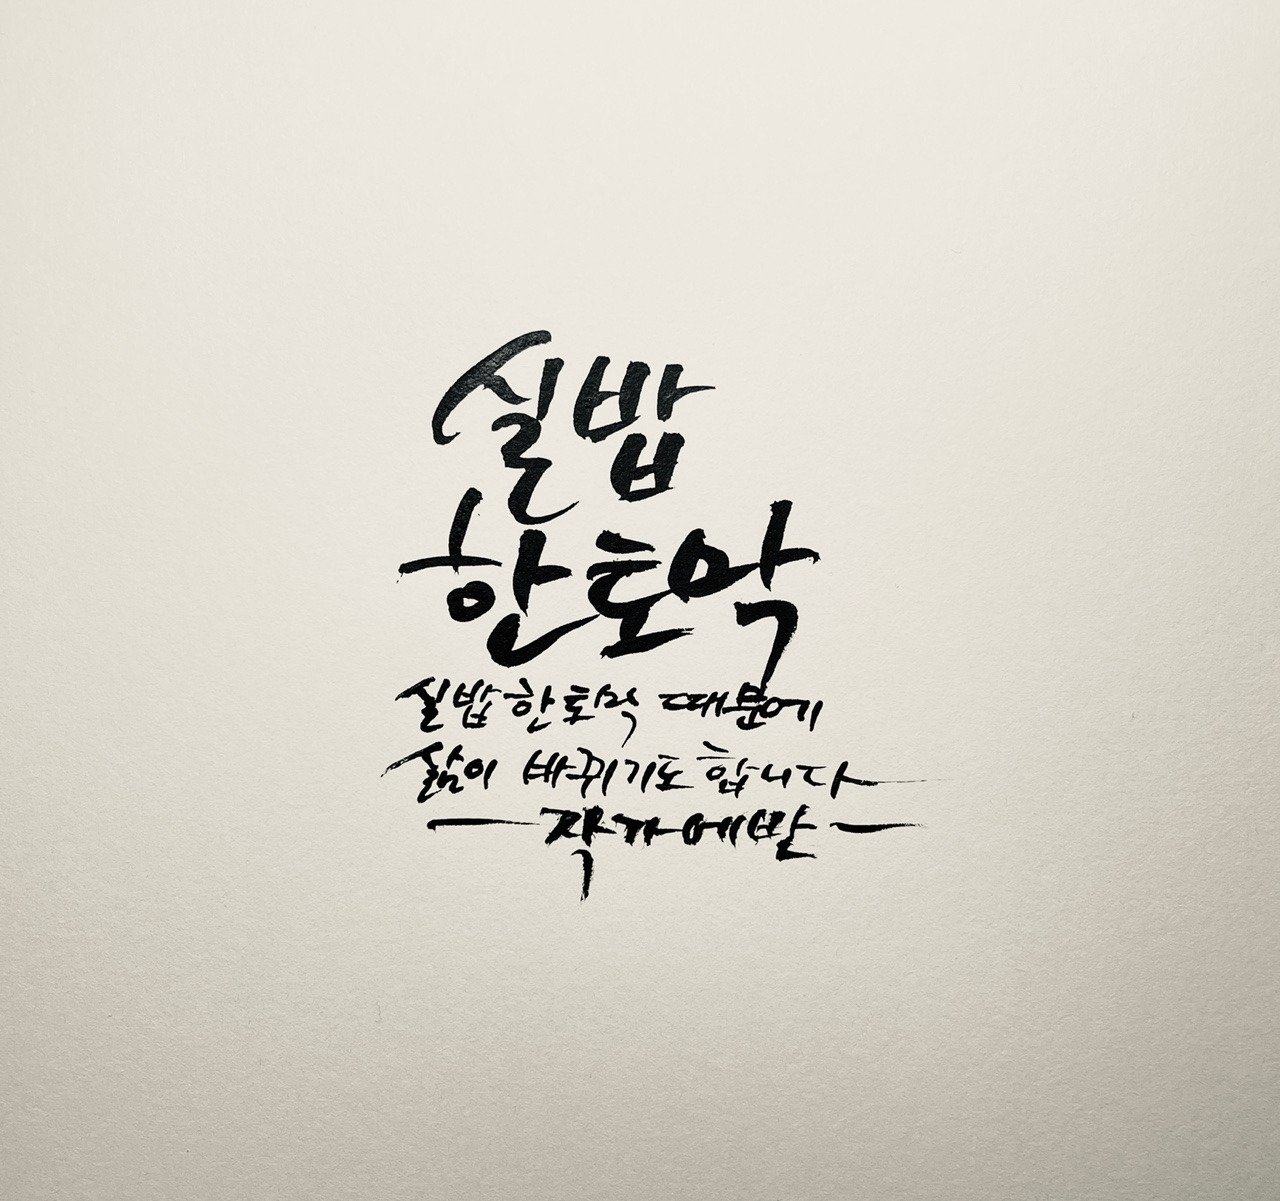 실밥
한토막
실밥한토막 때문에
삶이 바뀌기도 합니다
작가에반